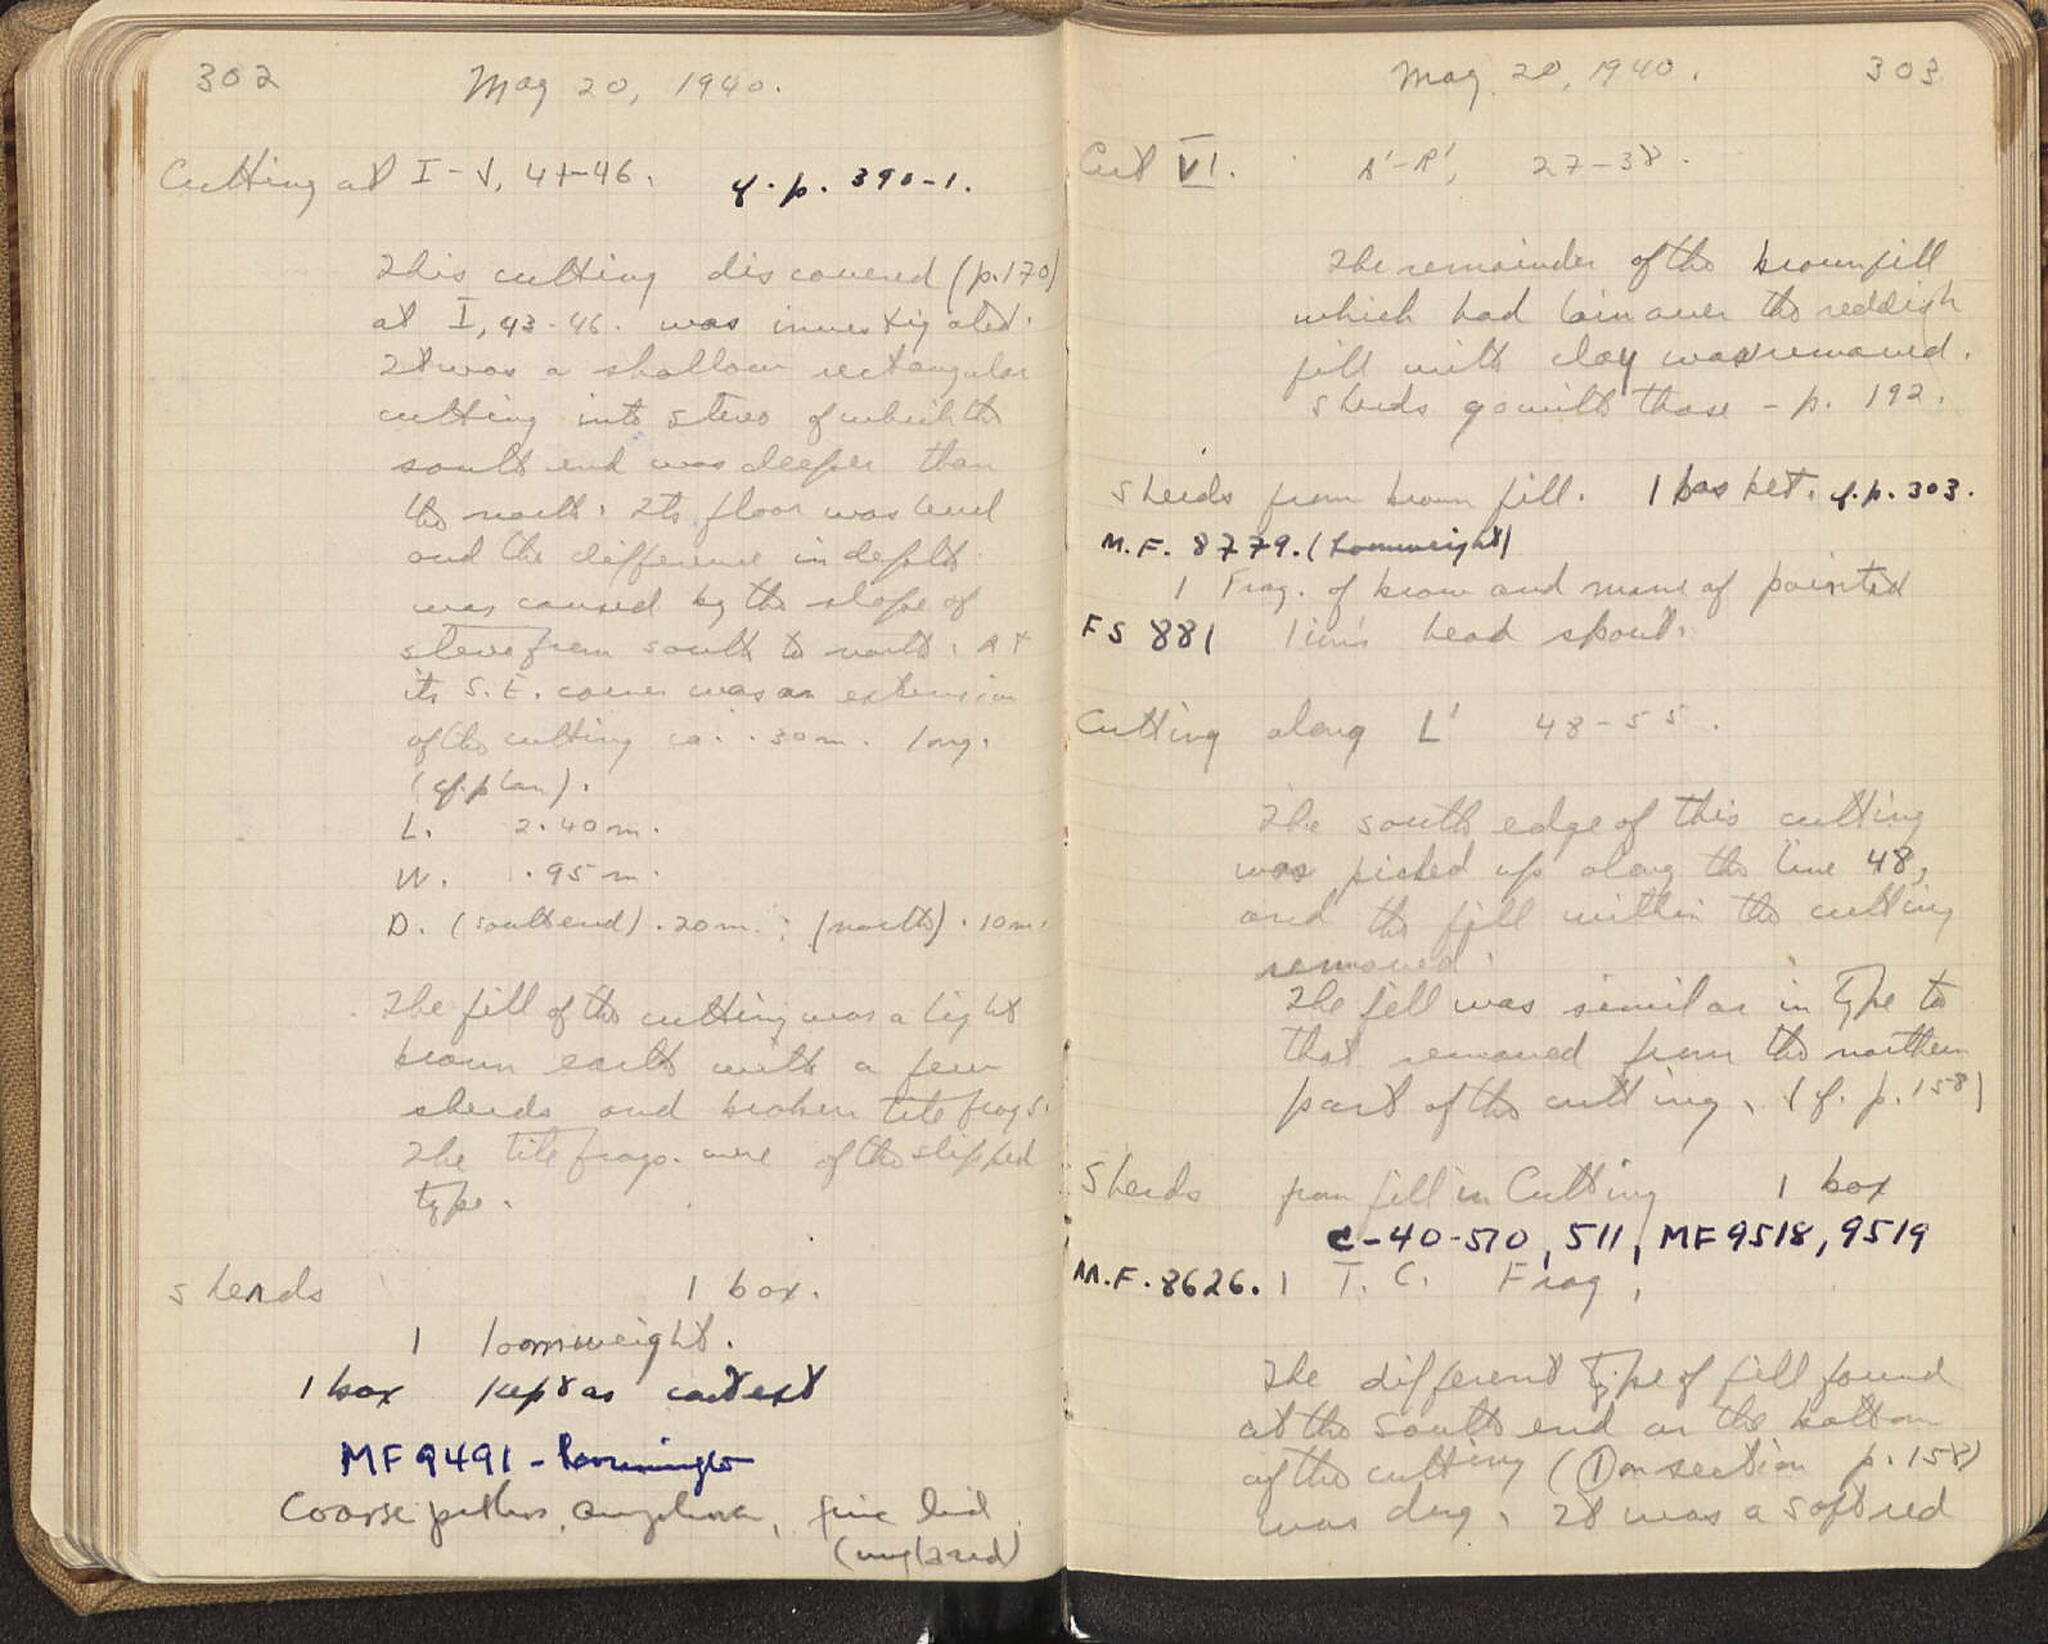 302
May 20, 1940.
Cutting at I-J, 41-46. cf. p. 390-1.
This cutting discovered (p.170)
at I, 43-46. was investigated.
It was a shallow rectangular
cutting into stereo of which the
south end was deeper than
the north. Its floor was level
and the difference in depth
was caused by the slope of
stereo from south to north. At
its S.E. corner was an extension
of the cutting ca. .30 m. long.
(cf. plan).
L. 2.40 m.
W. .95 m.
D. (south end) .20 m. ; (north) .10 m.
The fill of the cutting was a light
brown earth with a few
sherds and broken tile frags.
The tile frags. were of the slipped
type.
Sherds 1 box.
1 loomweight.
1 box kept as context
MF 9491 - loomweight
Coarse pithos, amphora, fine lid
(unglazed)
May 20, 1940. 303
Cut VI. 27-38.
The remainder of the brown fill
which had lain over the reddish
fill with clay was removed.
Sherds go with those - p. 192.
Sherds from brown fill. 1 basket. cf. p. 303.
M.F. 8779. (Loomweight)
1 Frag. of brow and mane of painted
FS 881 lion's head spout.
Cutting along L' 48-55.
The south edge of this cutting
was picked up along the line 48,
and the fill within the cutting
removed.
The fill was similar in type to
that removed from the northern
part of the cutting. (cf. p. 158)
Sherds from fill in Cutting 1 box
C-40-510, 511, MF 9518, 9519
M.F. 8626. 1 T.C. Frag.
The different type of fill found
at the south end on the bottom
of the cutting (① on section p. 158)
was dug. It was a soft red